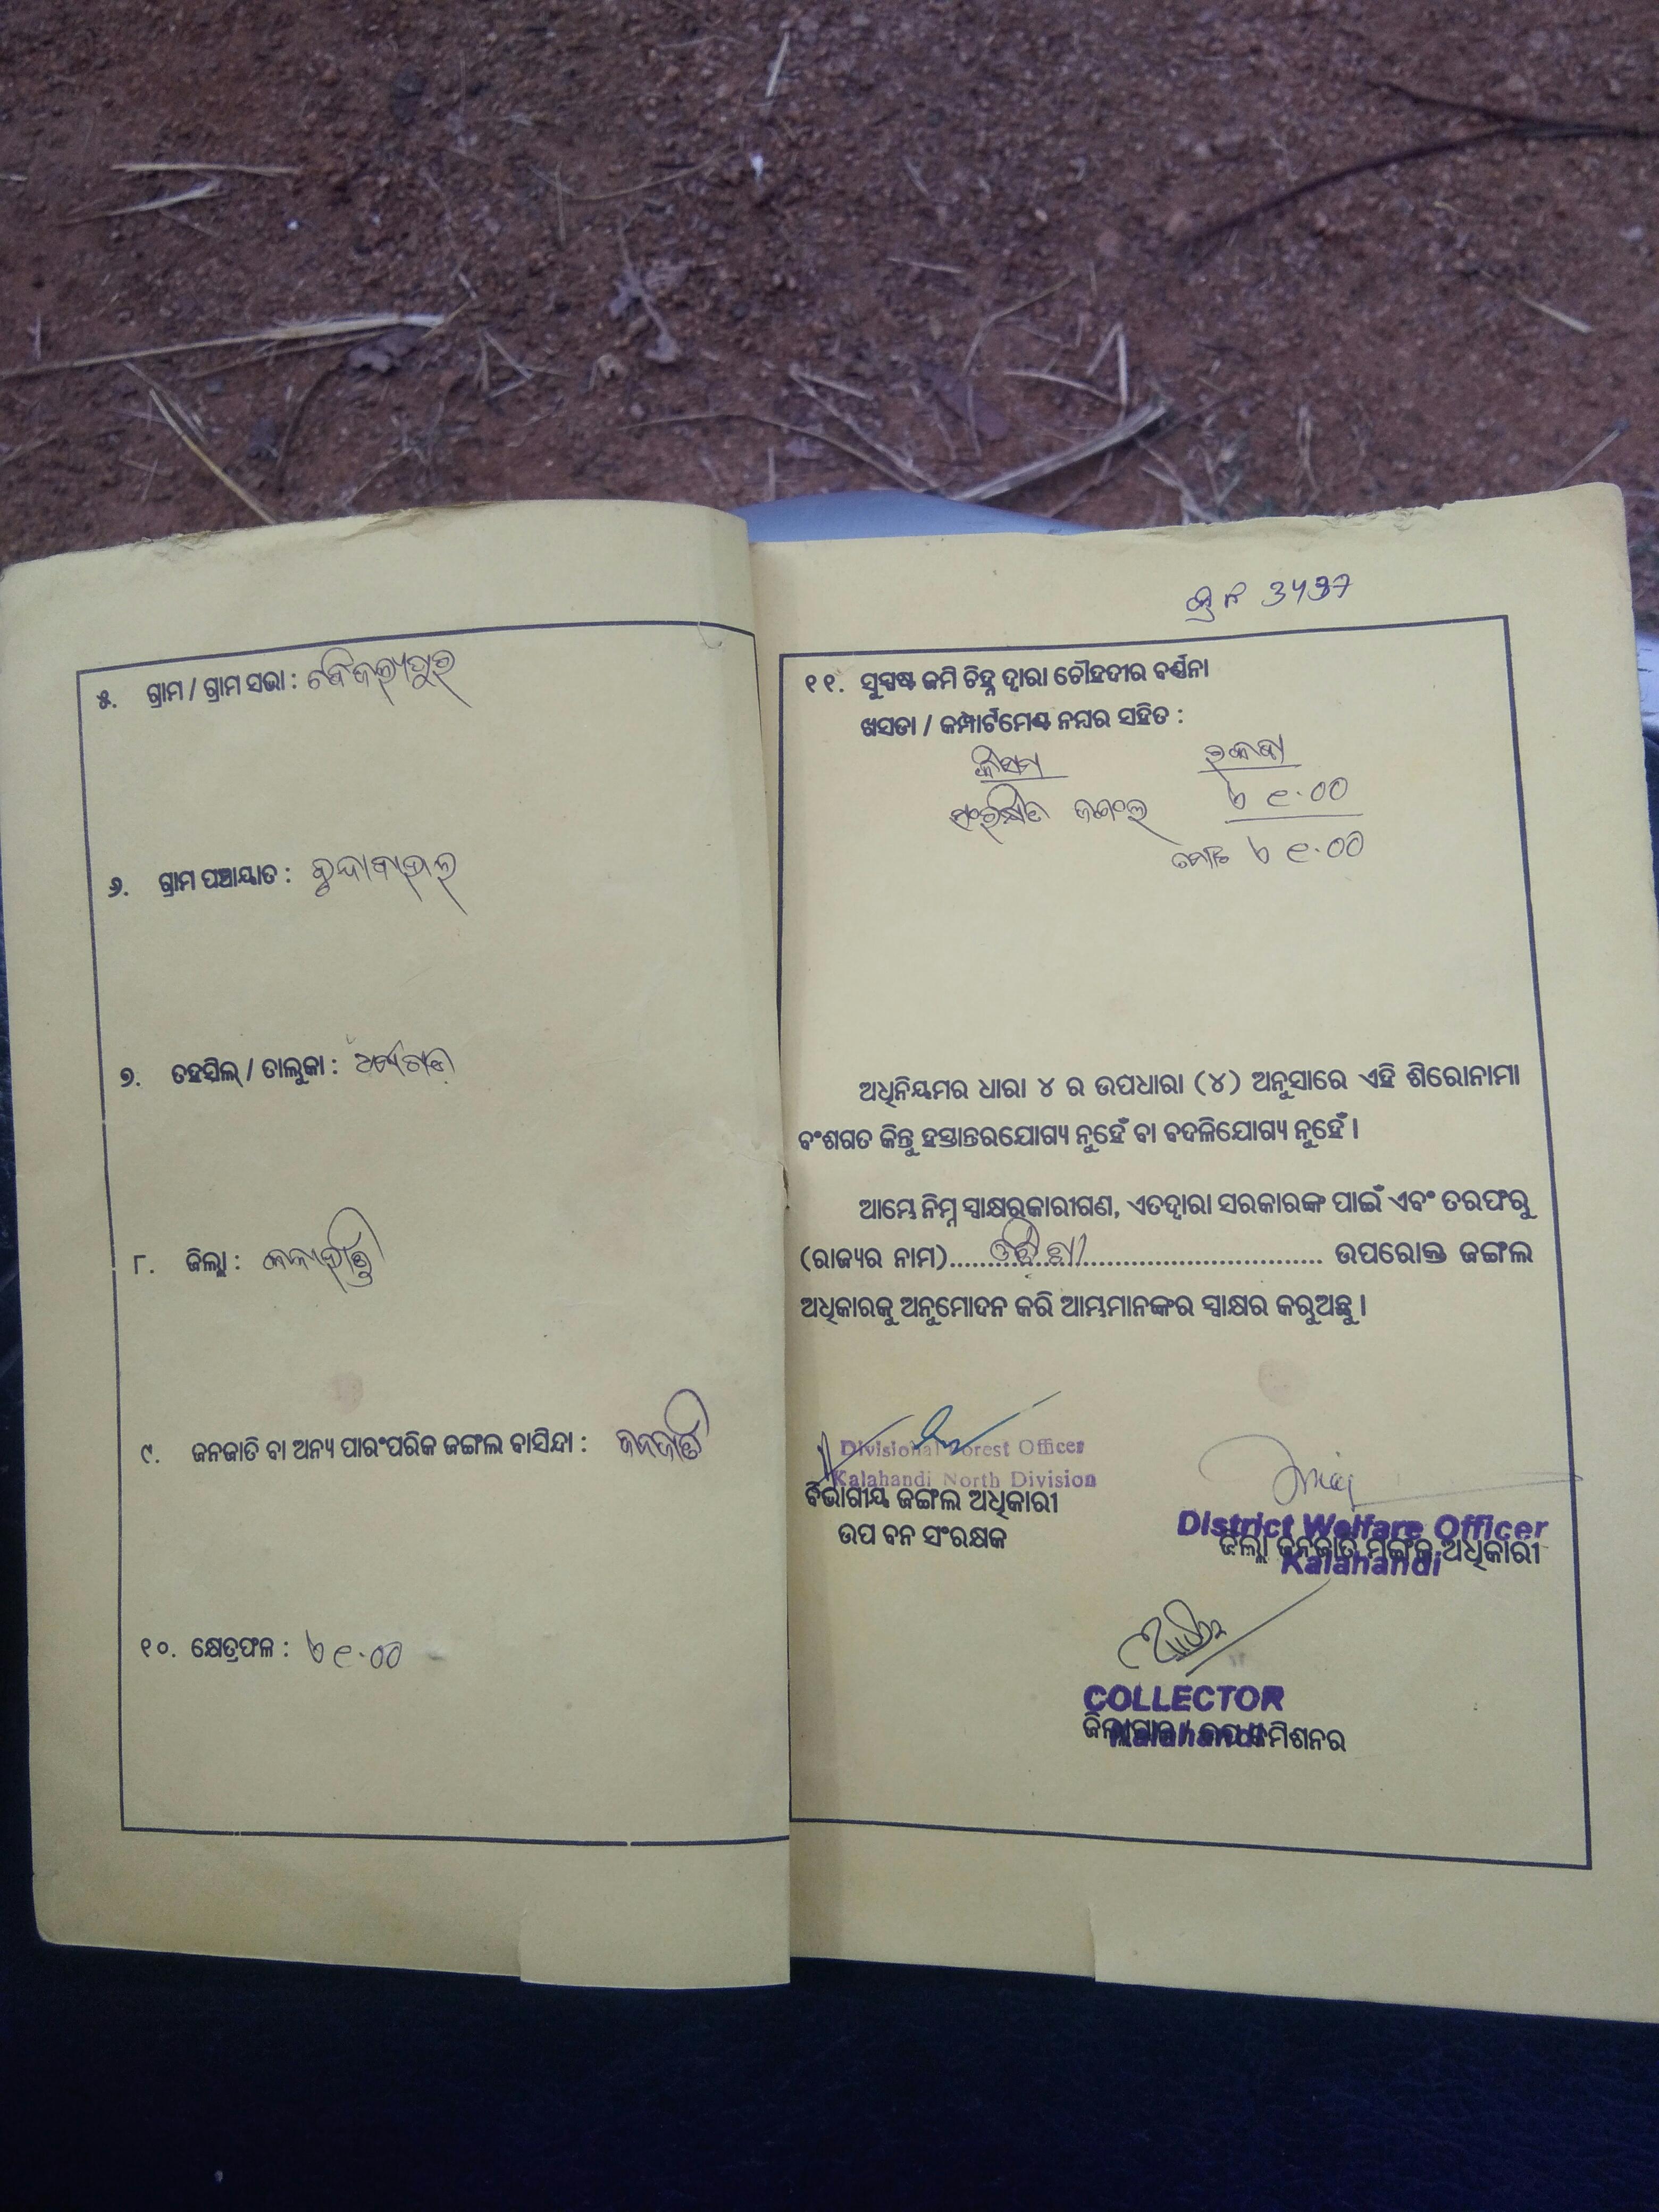 ୫. ଗ୍ରାମ / ଗ୍ରାମ ସଭା : ବିଜୟପୁର
୬. ଗ୍ରାମ ପଞ୍ଚାୟାତ :
୭. ତହସିଲ୍ / ତାଲୁକା : ଧର୍ମଗଡ
୮. ଜିଲ୍ଲା : କଳାହାଣ୍ଡି
୯. ଜନଜାତି ବା ଅନ୍ୟ ପାରଂପରିକ ଜଙ୍ଗଲ ବାସିନ୍ଦା : ଜନଜାତି
୧୦. କ୍ଷେତ୍ରଫଳ :
କ୍ର ନଂ
୧୧. ସୁସ୍ପଷ୍ଟ ଜମି ଚିହ୍ନ ଦ୍ୱାରା ଚୌହଦୀର ବର୍ଣ୍ଣନା
ଖସଡା / କମ୍ପାର୍ଟମେଣ୍ଟ ନମ୍ବର ସହିତ :
କିସମ ରକବା
ସଂରକ୍ଷିତ ଜଙ୍ଗଲ
ମୋଟ
ଅଧିନିୟମର ଧାରା ୪ ର ଉପଧାରା (୪) ଅନୁସାରେ ଏହି ଶିରୋନାମା
ବଂଶଗତ କିନ୍ତୁ ହସ୍ତାନ୍ତରଯୋଗ୍ୟ ନୁହେଁ ବା ବଦଳିଯୋଗ୍ୟ ନୁହେଁ ।
ଆମ୍ଭେ ନିମ୍ନ ସ୍ୱାକ୍ଷରକାରୀଗଣ, ଏତଦ୍ୱାରା ସରକାରଙ୍କ ପାଇଁ ଏବଂ ତରଫରୁ
(ରାଜ୍ୟର ନାମ)......ଓଡ଼ିଶା...... ଉପରୋକ୍ତ ଜଙ୍ଗଲ
ଅଧିକାରକୁ ଅନୁମୋଦନ କରି ଆମ୍ଭମାନଙ୍କର ସ୍ୱାକ୍ଷର କରୁଅଛୁ ।
Divisional Forest Officer
Kalahandi North Division
ବିଭାଗୀୟ ଜଙ୍ଗଲ ଅଧିକାରୀ
ଉପ ବନ ସଂରକ୍ଷକ
District Welfare Officer
ଜିଲ୍ଲା ଜନଜାତି ମଙ୍ଗଳ ଅଧିକାରୀ
Kalahandi
COLLECTOR
ଜିଲ୍ଲାପାଳ / ଉପ କମିଶନର
Kalahandi